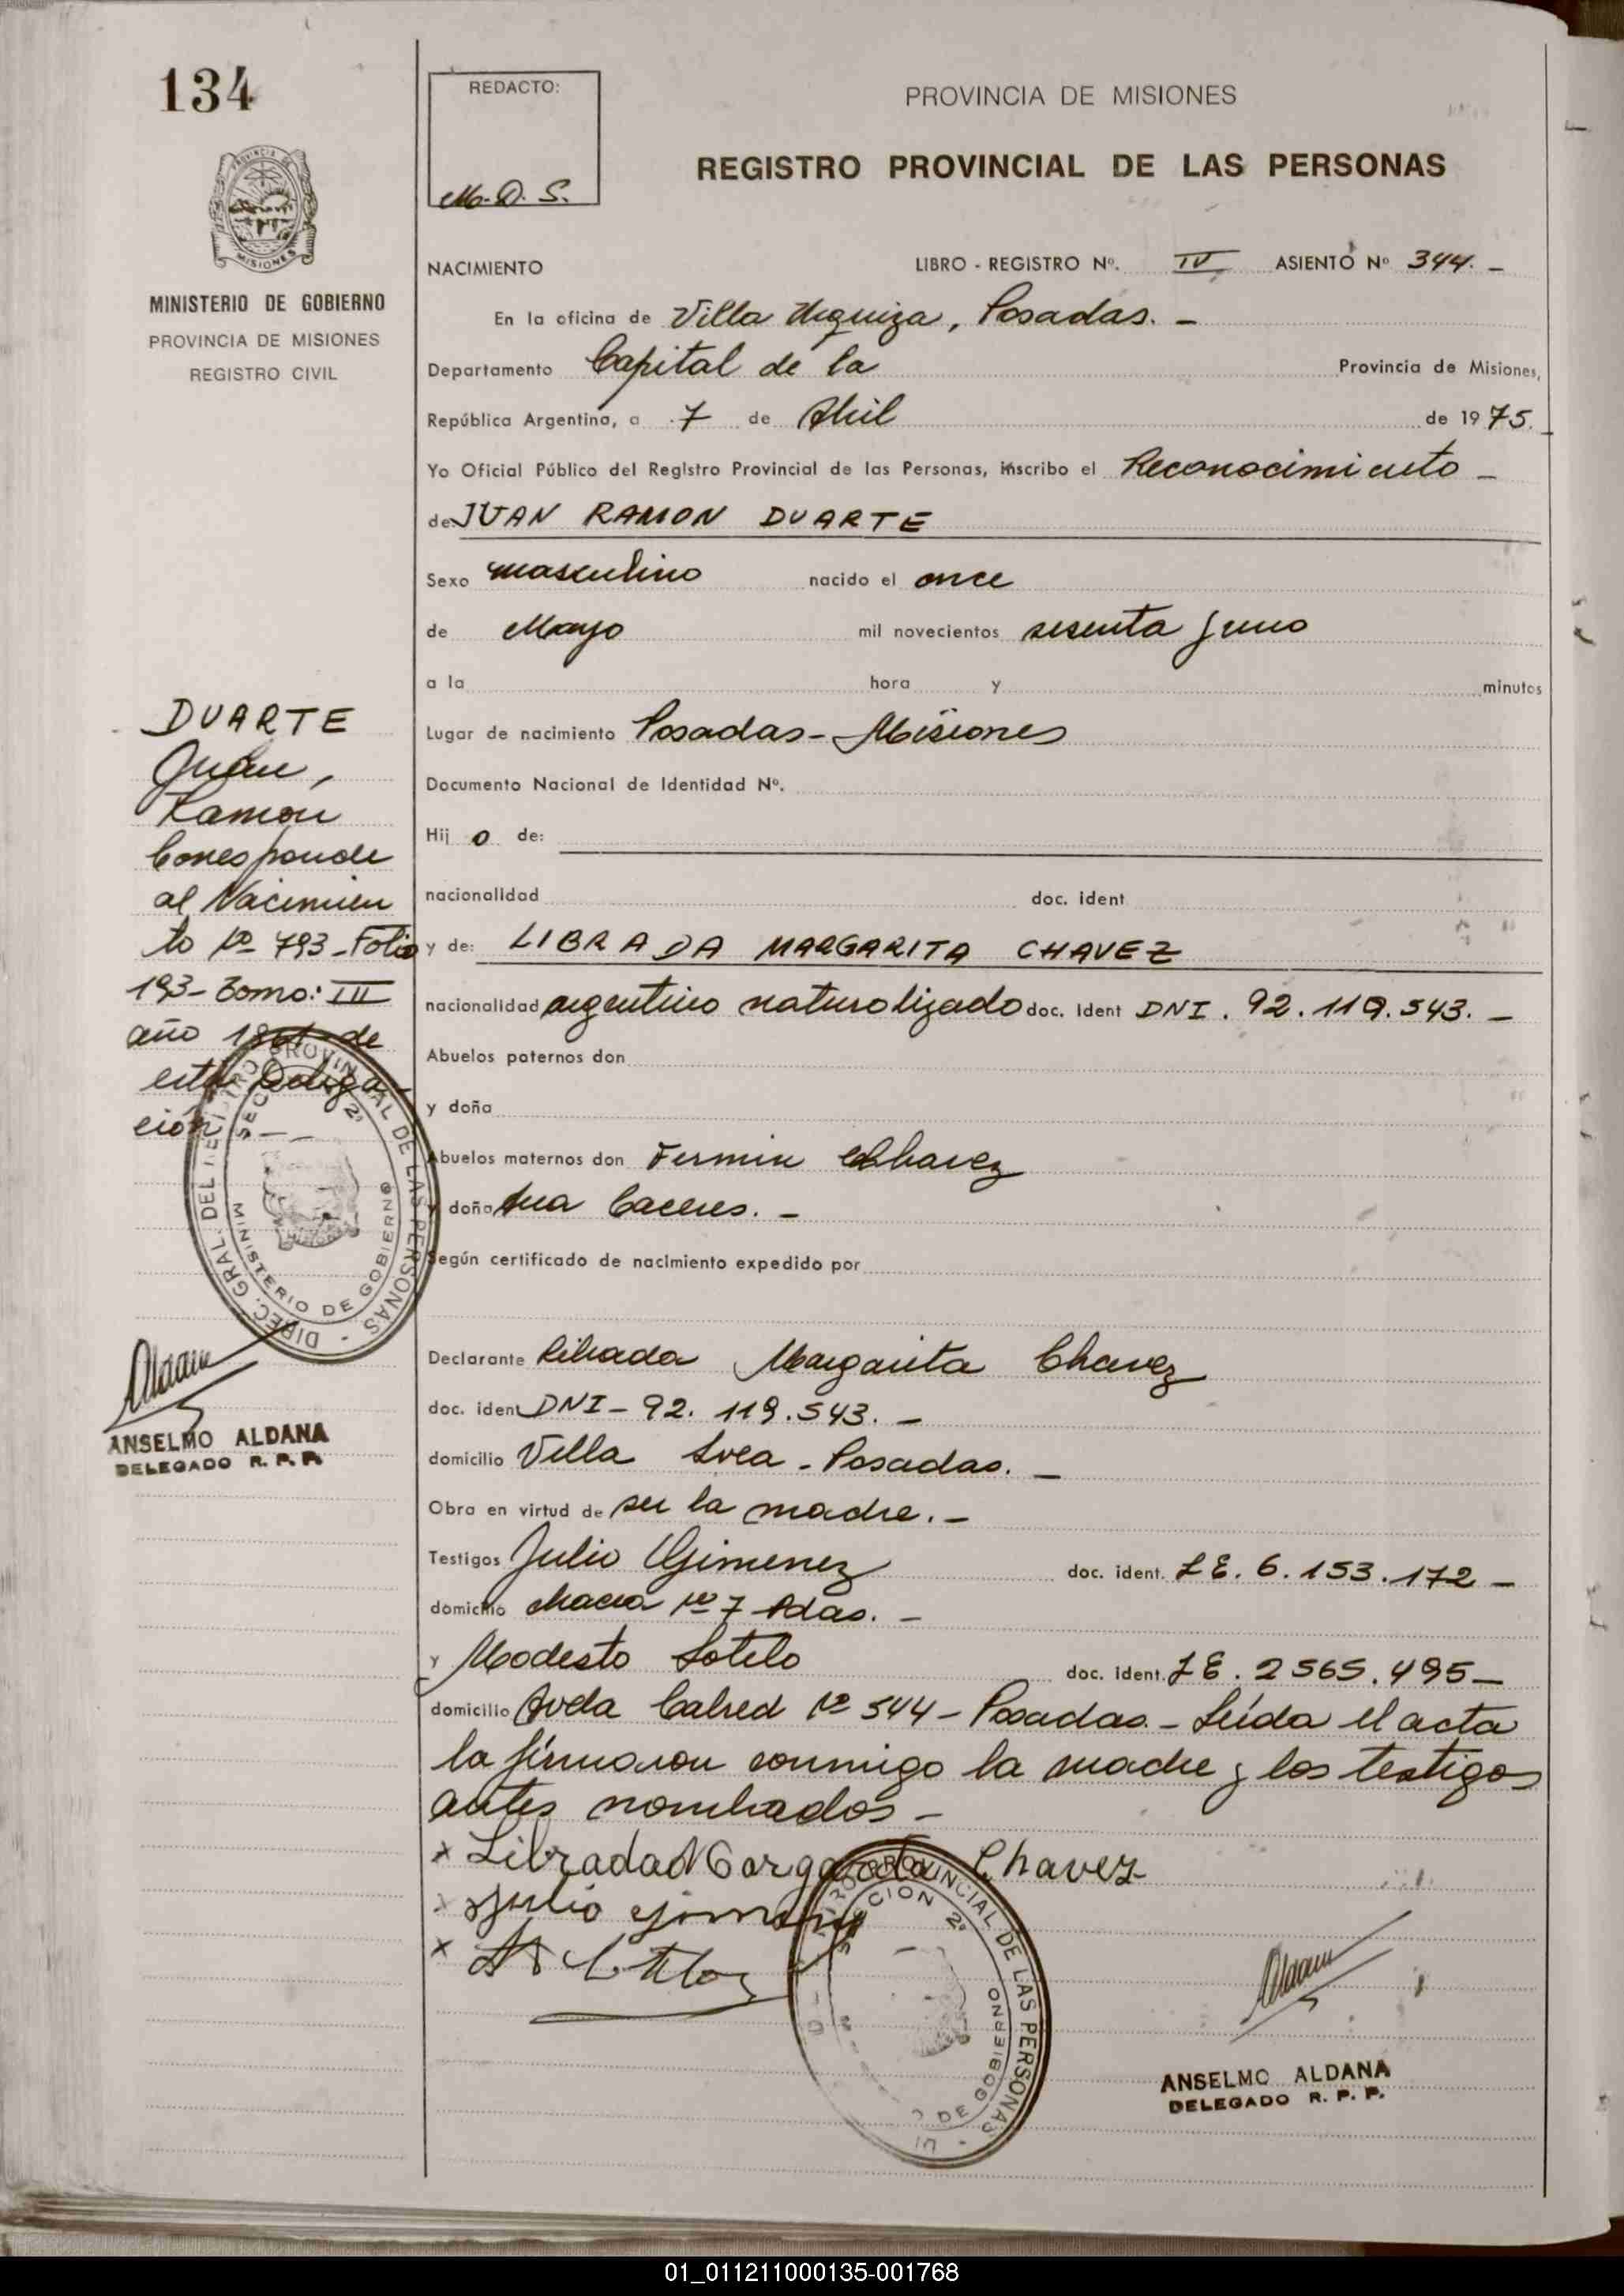 134
REDACTO:
M. D. S.
PROVINCIA DE MISIONES
REGISTRO PROVINCIAL DE LAS PERSONAS
MINISTERIO DE GOBIERNO
PROVINCIA DE MISIONES
REGISTRO CIVIL
NACIMIENTO LIBRO - REGISTRO Nº. IV ASIENTO Nº 344. -
En la oficina de Villa Urquiza, Posadas. -
Departamento Capital de la Provincia de Misiones,
República Argentina, a 7 de Abril de 1975.
Yo Oficial Público del Registro Provincial de las Personas, inscribo el Reconocimiento -
de JUAN RAMON DUARTE
Sexo masculino nacido el once
de Mayo mil novecientos sesenta y uno
a la hora y minutos
Lugar de nacimiento Posadas - Misiones
Documento Nacional de Identidad Nº.
Hij o de:
nacionalidad doc. ident
y de: LIBRADA MARGARITA CHAVEZ
nacionalidad argentino naturalizado doc. Ident DNI. 92.119.543. -
Abuelos paternos don
y doña
Abuelos maternos don Fermin Chavez
y doña Ana Caceres. -
Según certificado de nacimiento expedido por
Declarante Librada Margarita Chavez
doc. ident DNI - 92.119.543. -
domicilio Villa - Posadas. -
Obra en virtud de ser la madre. -
Testigos Julio Gimenez doc. ident. LE. 6.153.172 -
domicilio chacra Nº 7 Pdas. -
y Modesto Sotelo doc. ident. LE. 2565.495 -
domicilio Avda Cabred Nº 544 - Posadas. - Leída el acta
la firmaron conmigo la madre y los testigos
antes nombrados -
x Librada Margarita Chavez
x Julio Gimenez
x
DUARTE
Juan,
Ramón
Corresponde
al Nacimien
to Nº 793 - Folio
193 - Tomo: III
año 1961 de
esta Delega
ción. -
DIREC. GRAL. DEL REGISTRO PROVINCIAL DE LAS PERSONAS -
SECCION 2ª
MINISTERIO DE GOBIERNO
ANSELMO ALDANA
DELEGADO R. P. P.
PROVINCIAL DE LAS PERSONAS -
CION 2ª
DE GOBIERNO
ANSELMO ALDANA
DELEGADO R. P. P.
01_011211000135-001768